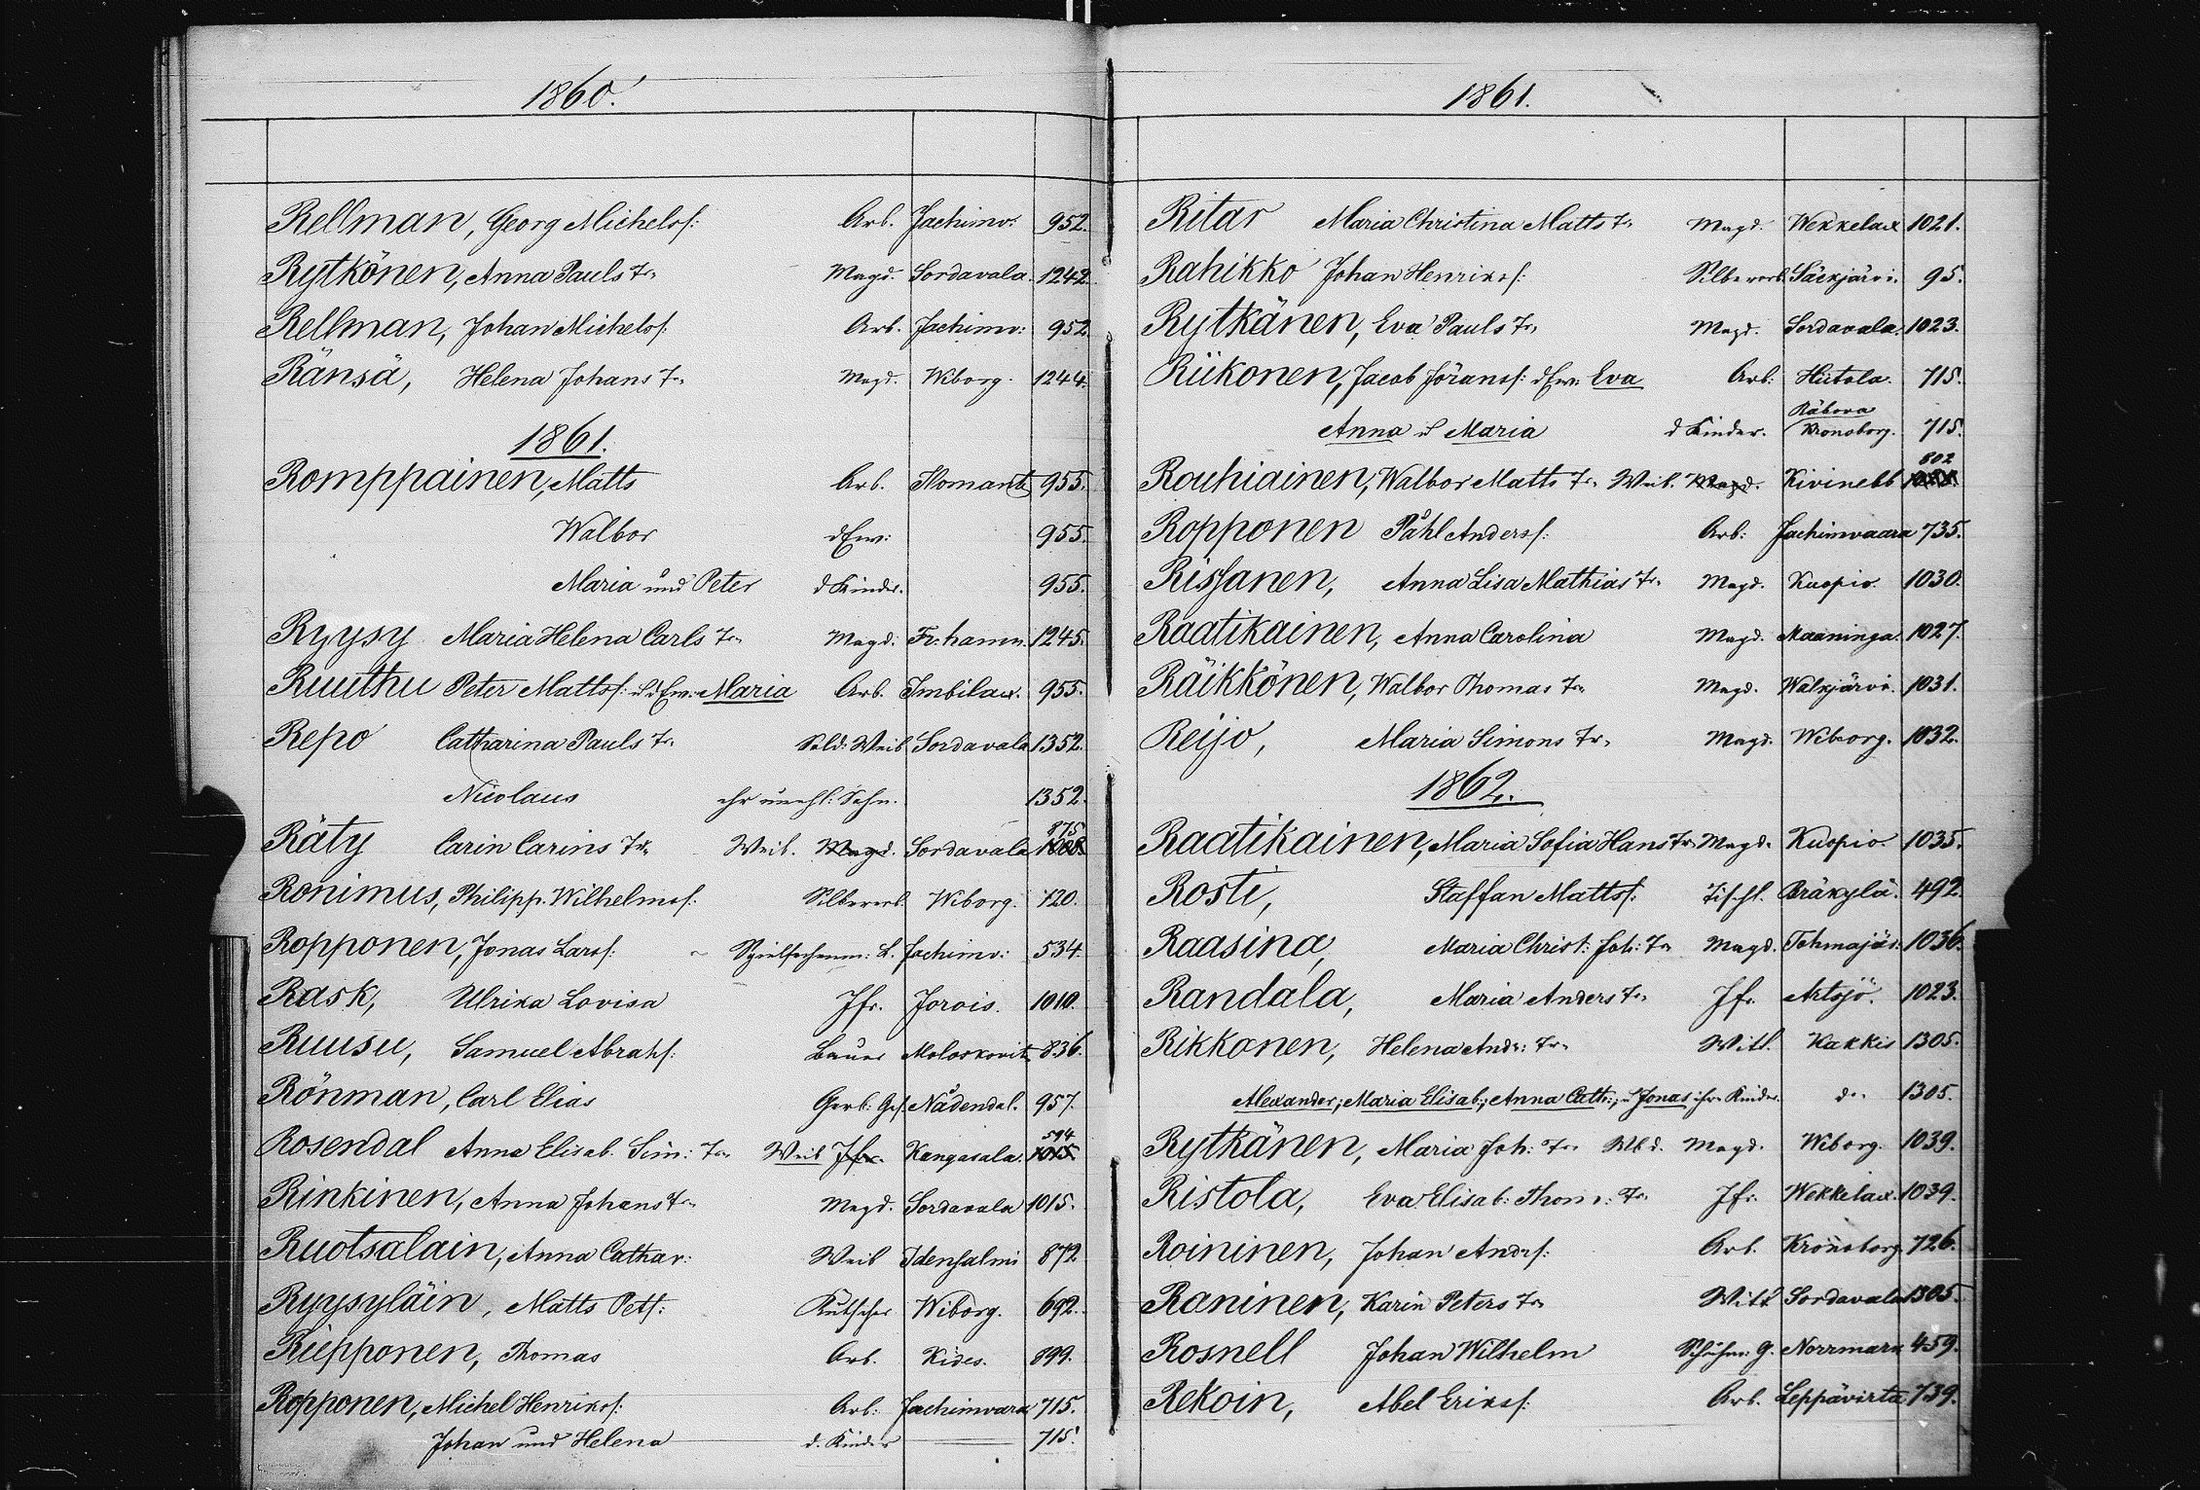 1860.
Rellman, Georg Michelsf: Arb. Jachimv: 952.
Rytkönen, Anna Pauls Tr. Magd. Sordavala. 1242.
Rellman, Johan Michelsf. Arb. Jachimv: 952.
Ränsä, Helena Johans Tr. Magd. Wiborg. 1244.
1861.
Romppainen, Matts Arb. Ilomants 955.
Walbor dEw: 955.
Maria und Peter d Kinder. 955.
Ryysy Maria Helena Carls Tr. Magd. Fr:hamn. 1245.
Ruuthu Peter Mattsf: u dEw: Maria Arb. Imbilax. 955.
Repo Catharina Pauls Tr. Sold: Weib Sordavala 1352.
Nicolaus ihr unehl: Sohn. 1352.
875
Räty Carin Carins Tr. Weib. Magd. Sordavala
Ronimus, Philipp. Wilhelmsf. Silberarb. Wiborg. 120.
Ropponen, Jonas Larsf: Jachimv: 534.
Rask, Ulrika Lovisa Jfr. Jorois. 1010.
Ruusu, Samuel Abrahf: Bauer Moloskovitz 836.
Rönman, Carl Elias Gerb: Ges. Nådendal. 957.
594
Rosendal Anna Elisab. Sim: Tr. Weib Jfr. Kangasala. 1015.
Rinkinen, Anna Johans Tr. Magd. Sordavala 1015.
Ruotsalain, Anna Cathar: Weib Idensalmi 872
Ryysyläin, Matts Petf: Kutscher Wiborg. 692.
Riepponen, Thomas Arb. Kides. 899.
Ropponen, Michel Henriksf: Arb: Jachimvara 715.
Johan und Helena d. Kinder 715.
1861.
Ritar Maria Christina Matts Tr. Magd. Wekkelax 1021.
Rahikko Johan Henriksf: Silberarb. Säckjärvi. 95.
Rytkänen, Eva Pauls Tr. Magd. Sordavala. 1023.
Riikonen, Jacob Göransf: dEw: Eva Arb: Hiitola. 715.
Räbova
Anna u Maria d Kinder. Kronoborg. 715.
802
Rouhiainen, Walbor Matts Tr. Weib. Magd. Kivinebb
Ropponen Påhl Andersf: Arb: Jachimvaara 735.
Rissanen, Anna Lisa Mathias Tr. Magd. Kuopio. 1030.
Raatikainen, Anna Carolina Magd. Maaninga. 1027.
Räikkönen, Walbor Thomas Tr. Magd. Walkjärvi. 1031.
Reijo, Maria Simons Tr. Magd. Wiborg. 1032.
1862.
Raatikainen, Maria Sofia Hans Tr. Magd. Kuopio. 1035.
Rosti, Staffan Mattsf: Tischl. Bräkylä. 492.
Raasina, Maria Christ: Joh: Tr. Magd. Tohmajär. 1036.
Randala, Maria Anders Tr. Jfr. Artsjö. 1023.
Rikkonen, Helena Andr: Tr. Witt. Kakkis 1305.
Alexander, Maria Elisab:, Anna Cath:, u Jonas ihre Kinder. do. 1305.
Rytkänen, Maria Joh: Tr. Magd. Wiborg. 1039.
Ristola, Eva Elisab: Thom: Tr. Jfr. Wekkelax. 1039.
Roininen, Johan Andrsf: Arb. Kronoborg. 726.
Raninen, Karin Peters Tr. Witt Sordavala 1305.
Rosnell Johan Wilhelm Schuhm: G. Norrmark 459.
Rekoin, Abel Eriksf: Arb. Leppävirta 739.